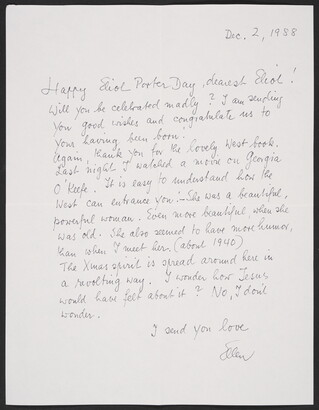 Dec. 2, 1988
Happy Eliot Porter Day, dearest Eliot!
Will you be celebrated madly? I am sending
you good wishes and congratulate us to
your having been born.
Again, thank you for the lovely West book.
Last night I watched a movie on Georgia
O'Keefe. It is easy to understand how the
West can entrance you. – She was a beautiful,
powerful woman. Even more beautiful, when she
was old. She also seemed to have more humor,
than when I meet her, (about 1940)
The Xmas spirit is spread around here in
a revolting way. I wonder how Jesus
would have felt about it? No, I don't
wonder.
I send you love
Ellen